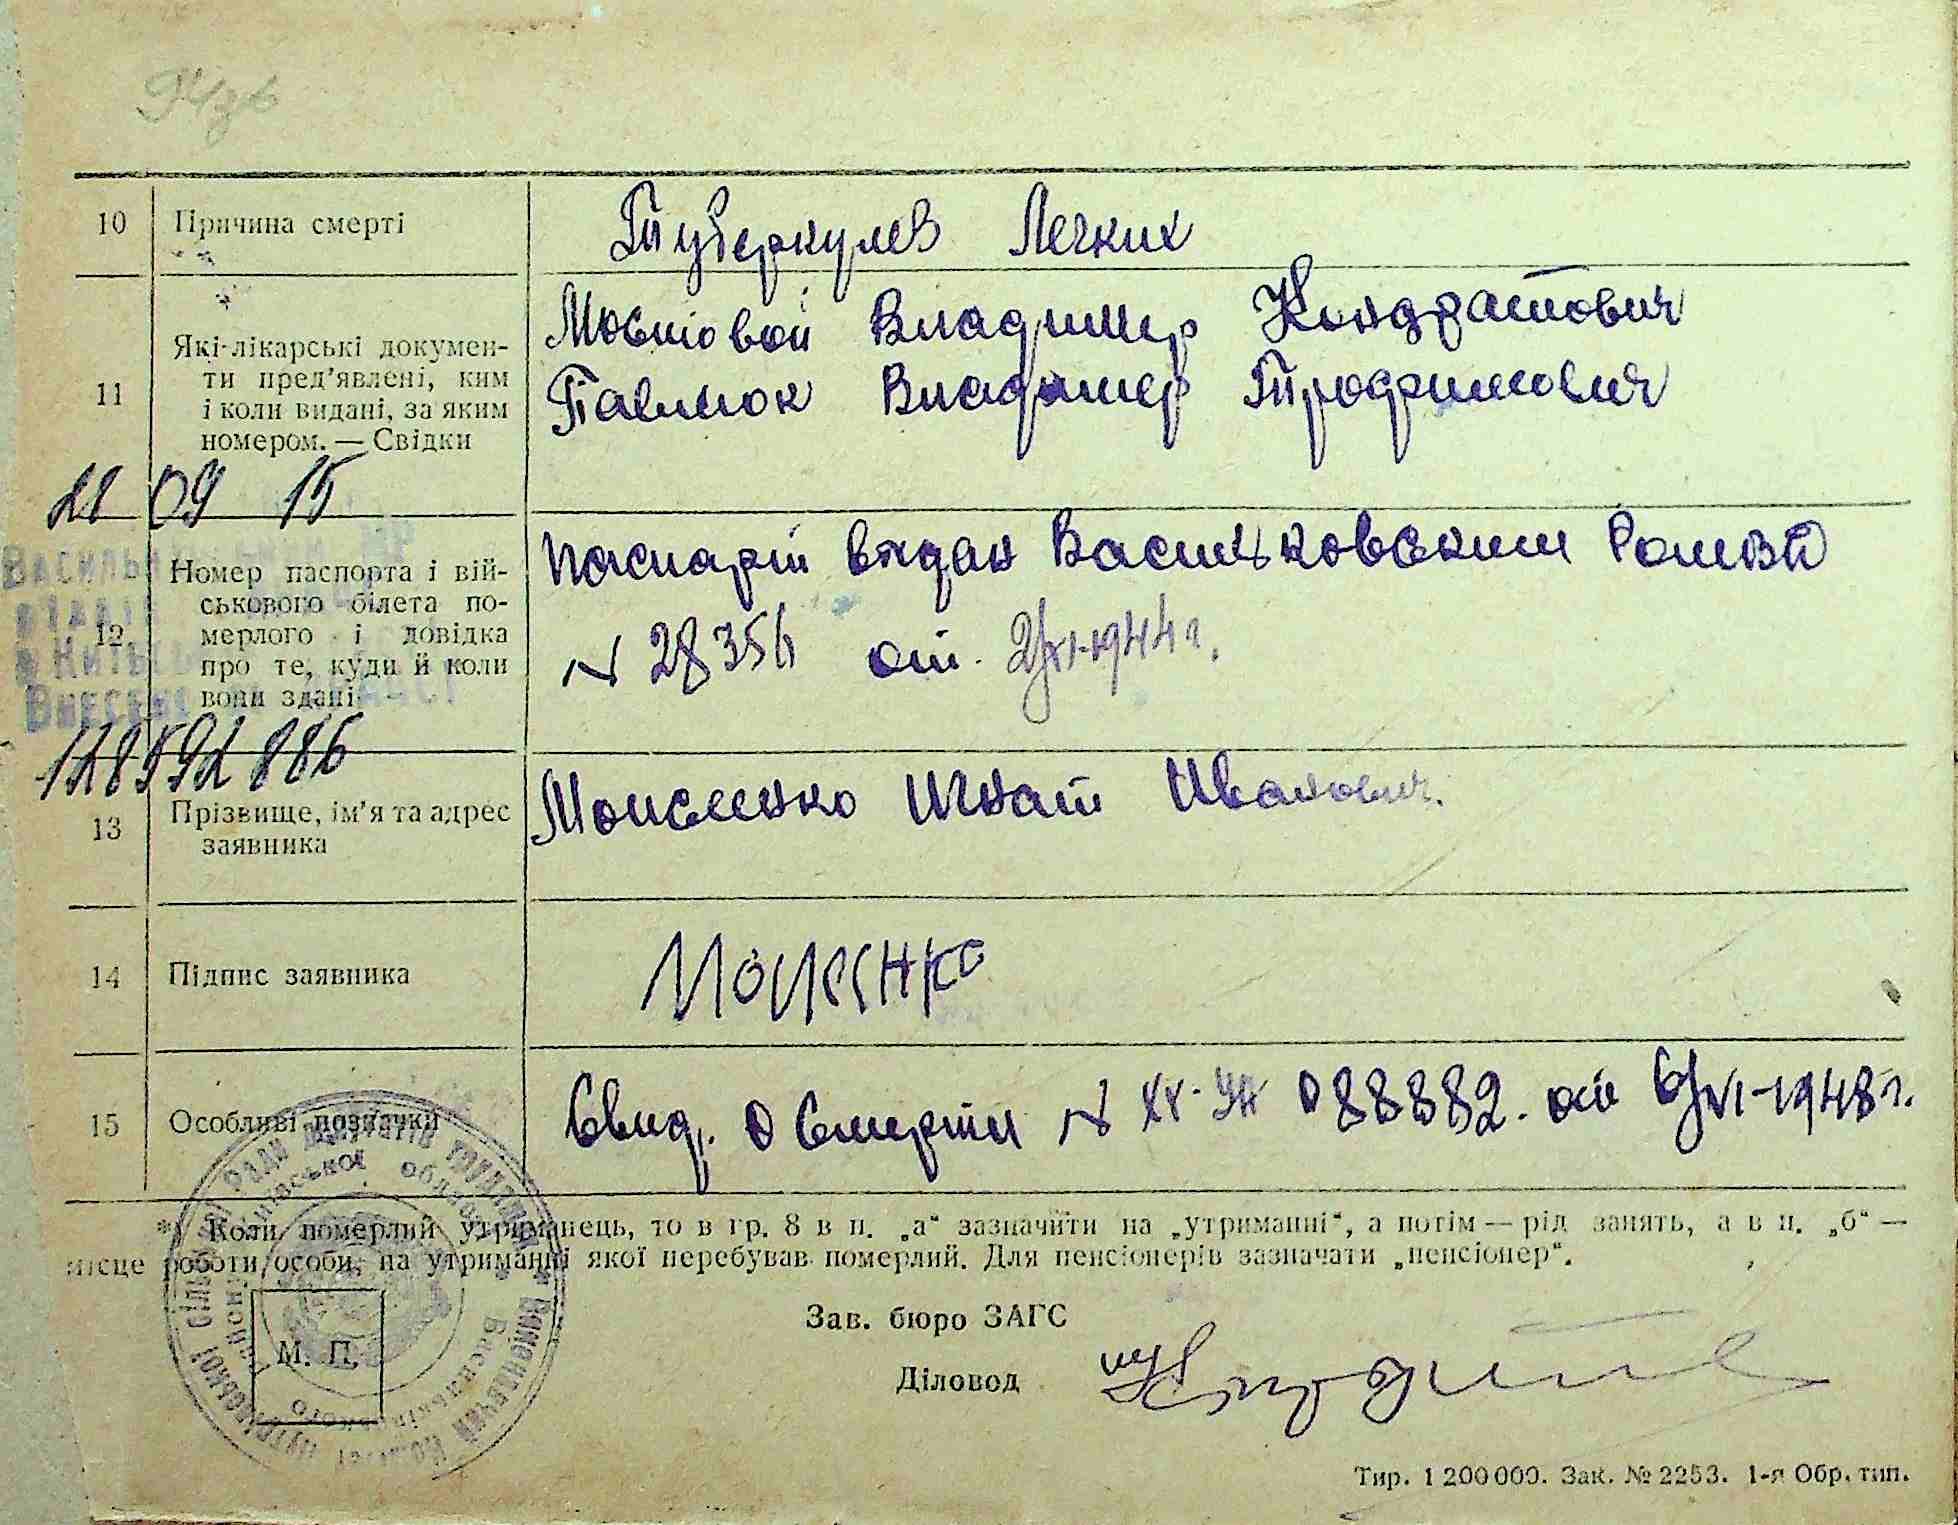 10 Причина смерті Туберкулез Легких
11 Які лікарські докумен-
ти пред'явлені, ким
і коли видані, за яким
номером. — Свідки
Мостовой Владимер Кондратович
Павлюк Владимер Трофимович
21 09 15
12 Номер паспорта і вій-
ськового білета по-
мерлого і довідка
про те, куди й коли
вони здані
паспарт видан Васильковским
N 28356 от 1944 г.
128592886
13 Прізвище, ім'я та адрес
заявника
Моисеенко Игнат Иванович.
14 Підпис заявника
15 Особливі позначки Свид. о Смерти N 088882. от 6/VI-1948 г.
*) Коли померлий утриманець, то в гр. 8 в п. „а“ зазначити на „утриманні“, а потім — рід занять, а в п. „б“ —
місце роботи особи, на утриманні якої перебував померлий. Для пенсіонерів зазначати „пенсіонер“.
М. П.
Зав. бюро ЗАГС
Діловод
Тир. 1 200 000. Зак. № 2253. 1-я Обр. тип.